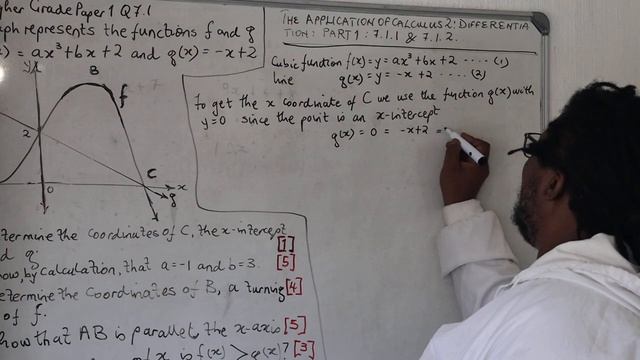 gher Grade Paper 1 Q7.1
aph represents the functions f and g
) = ax³+bx+2 and g(x) = -x+2
y
B
f
2
C
0
x
g
termine the coordinates of C, the x-intercept
d g. [1]
how, by calculation, that a=-1 and b=3. [5]
etermine the coordinates of B, a turning [4]
of f.
how that AB is parallel the x-axis [5]
of x is f(x) > g(x)? [3]
THE APPLICATION OF CALCULUS 2: DIFFERENTIA
TION: PART 1: 7.1.1 & 7.1.2.
Cubic function f(x)=y= ax³+bx+2 ..... (1)
line g(x)=y = -x+2 .....(2)
To get the x coordinate of C we use the function g(x) with
y=0 since the point is an x-intercept
g(x) = 0 = -x+2 =